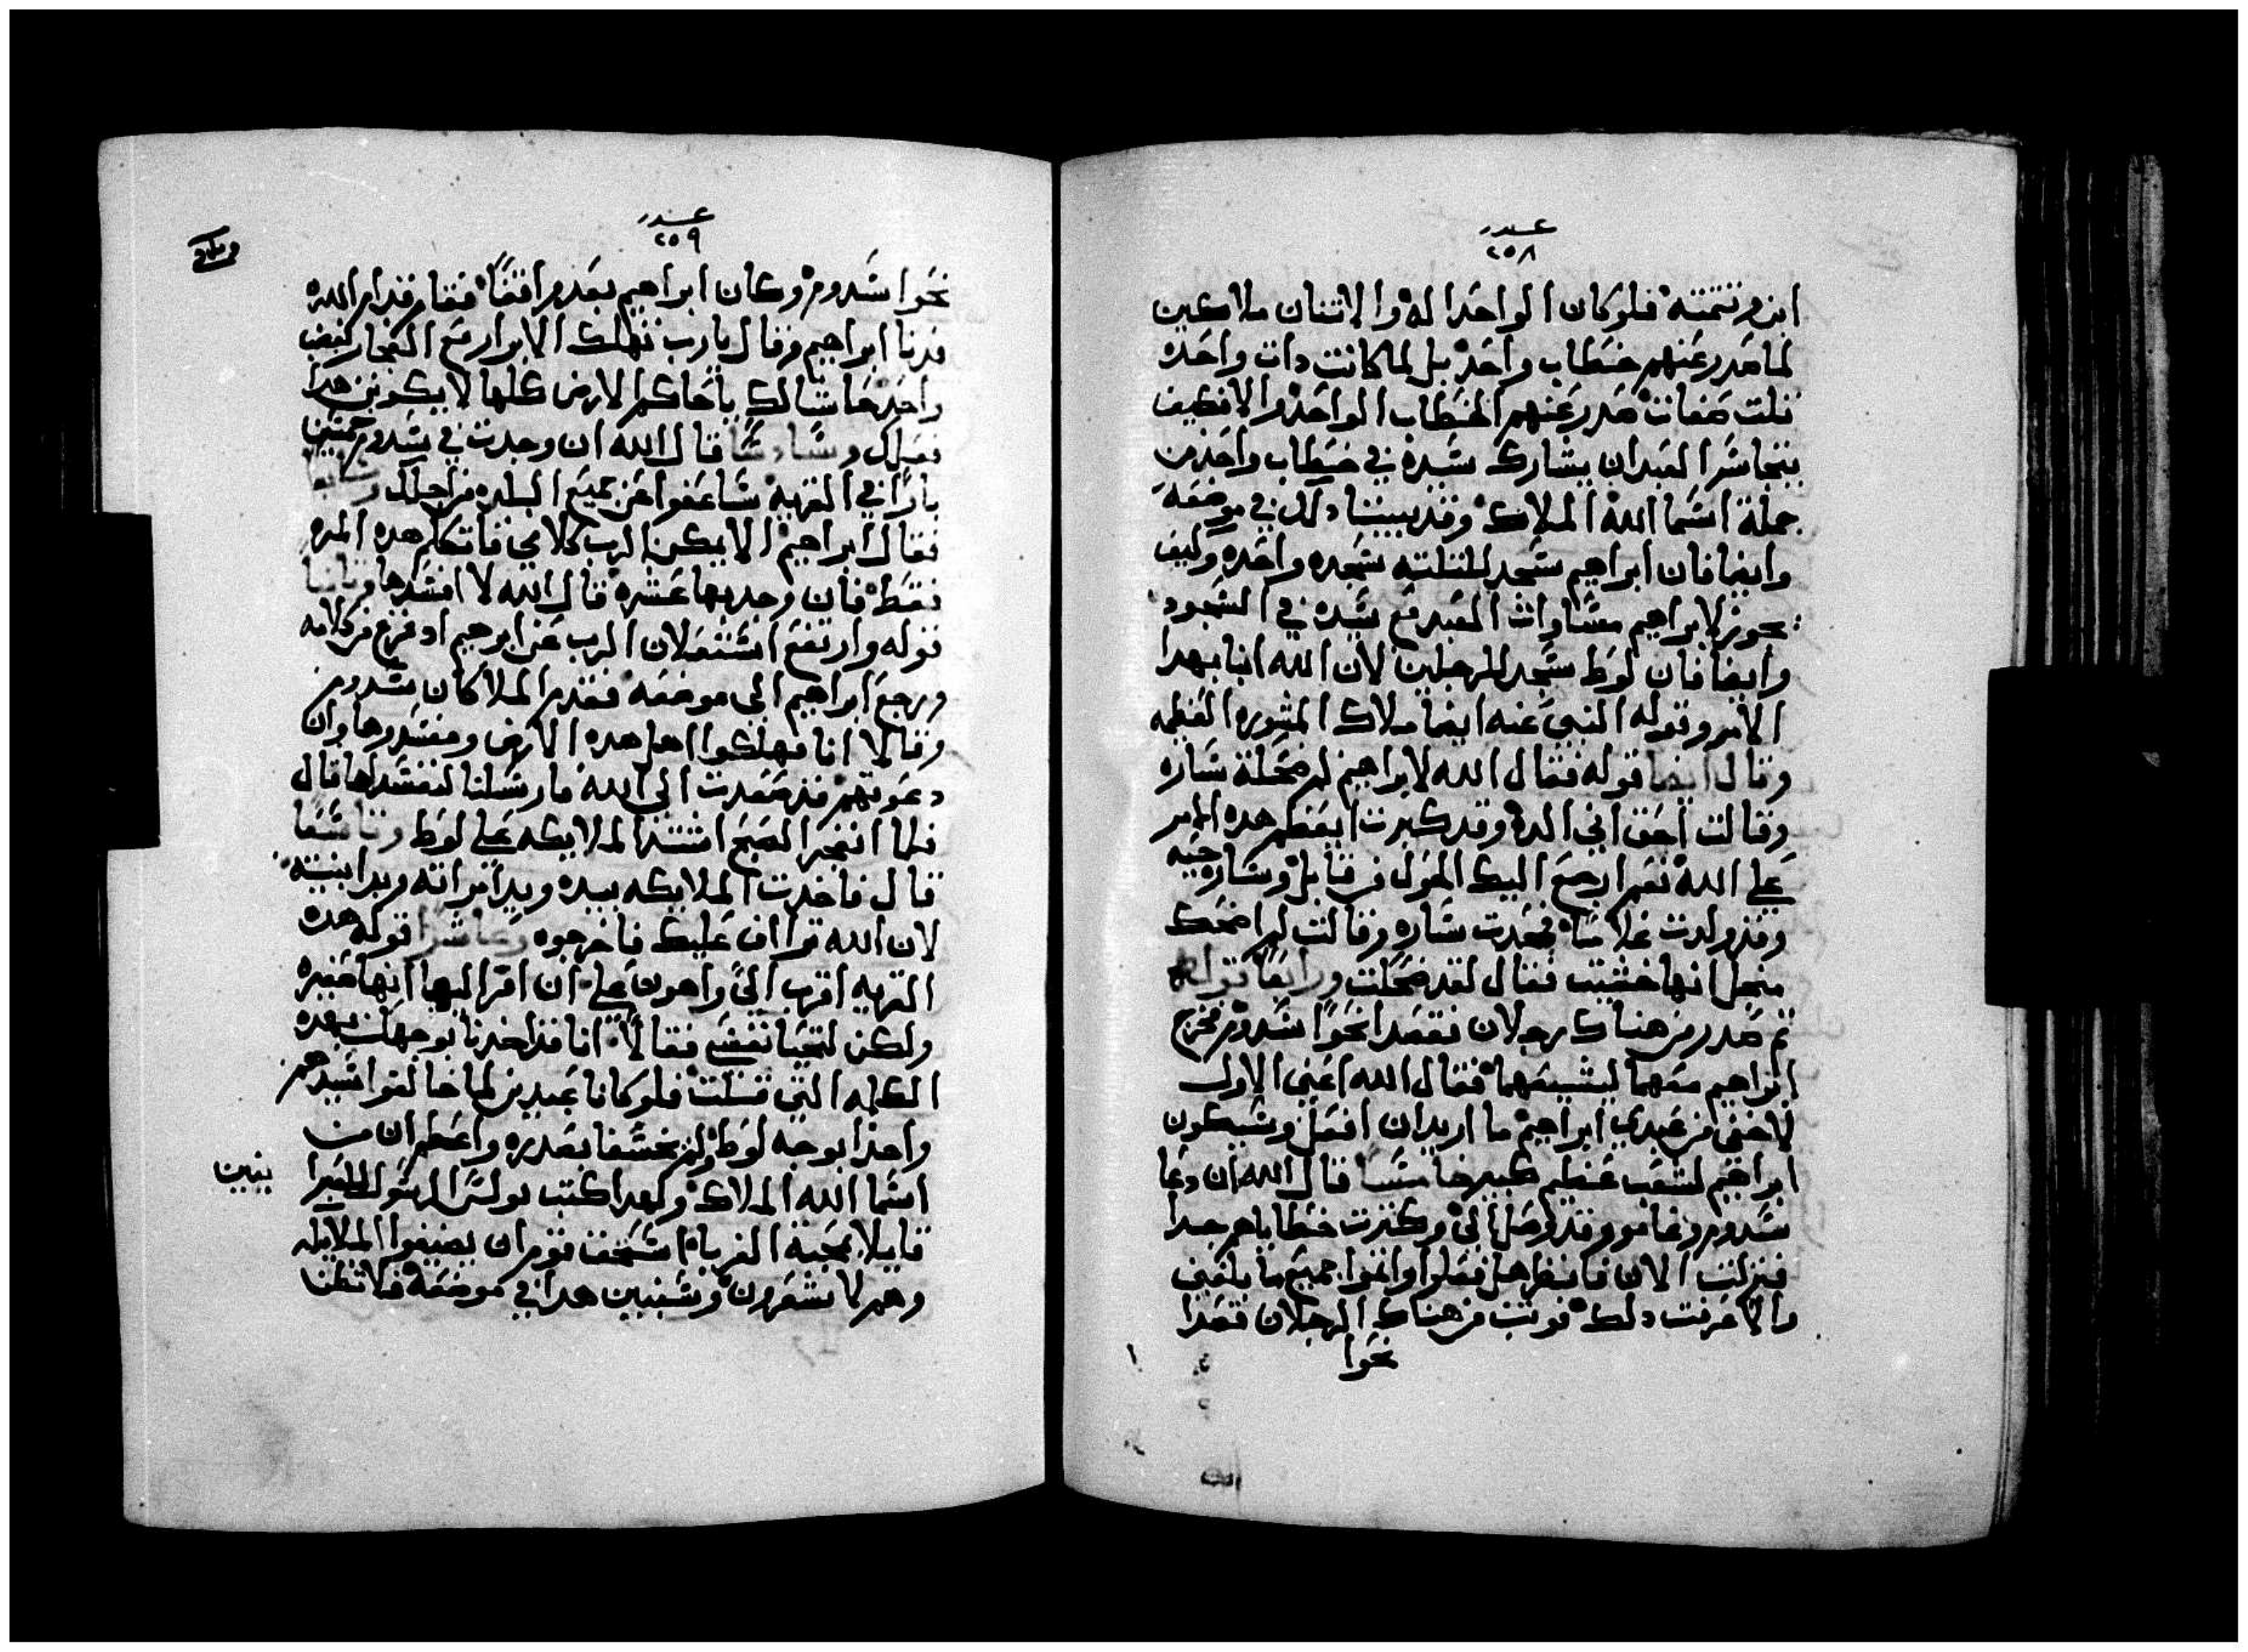 عدد
٢٥٨
ابن وتتمته فلوكان الواحد اله والاتنان ملاكين
لما صدر عنهم خطاب واحد بل لما كانت دات واحده
تلت صفات صدر عنهم الخطاب الواحد والا فكيف
يتجاسر العبد ان يشارك سيده في خطاب واحد من
جملة اسما الله الملاك وقد بيينا دلك في موضعه
وايضا فان ابراهيم سجد للتلته سجده واحده وكيف
يجوز لابراهيم مساوات العبد مع سيده في السجود
وايضا فان لوط سجد للرجلين لان الله انبا بهدا
الامر وقوله النبي عنه ايضا ملاك المشوره العظيمه
وقال ايضا قوله فقال الله لابراهيم لم ضحكة ساره
وقالت احق اني الده وقد كبرت ايعظم هده الامر
علي الله نعم ارجع اليك الحول من قابل وساره حيه
وقد ولدت غلاما فجحدت ساره وقالت لم اضحك
منجل انها خشيت فقال لقد ضحكت ورابعا قوله
تم صدر من هناك رجلان فقصدا نحوا سدوم فخرج
ابراهيم معهما ليشيعهما فقال الله اعني الاول
لاخفى من عبدي ابراهيم ما اريد ان افعل وسيكون
ابراهيم لشعب عظيم كبير خامسا قال الله ان دعا
سدوم وغامور قد وصل الي وكترت خطاياهم جدا
فنزلت الان فانظر هل فعلوا واتموا جميع ما بلغني
والا عرفت دلك فوتب من هناك الرجلان قصدا
نحوا
عدد
٢٥٩
نحوا سدوم وكان ابراهيم بعد واقفا فقام قدام الله
فدنا ابراهيم وقال يارب تهلك الابرار مع الفجار بغضب
واحد حاشا لك ياحاكم الارض كلها لا يكونن هدا
فعلك وسادسا قال الله ان وجدت في سدوم خمسين
بارا في القريه ساعفوا عن جميع البلده من اجلك وسابعا
فقال ابراهيم الا يمكن الرب كلامي فاتكلم هده المره
فقط فان وجد بها عشره قال الله لا افسدها وتامنا
قوله وارتفع استعلان الرب عن ابرهيم اد فرغ من كلامه
ورجع ابراهيم الي موضعه فقدم الملاكان سدوم
وقالا انا مهلكوا اهل هده الارض ومفسدوها وان
دعوتهم قد صعدت الي الله فارسلنا لنفسدها قال
فلما انفجر الصبح اشتد الملايكه علي لوط وتاسعا
قال فاخدت الملايكه بيده ويد امراته ويد ابنتيه
لان الله تراف عليك فاخرجوه وعاشرا قوله هده
القريه اقرب الي واهون علي ان افر اليها انها صغيره
ولكن لتحيا نفسي فقالا انا قد اخدنا بوجهك بهده
الكلمه التي قلت فلو كانا عبدين لما خالفوا سيدهم
واخدا بوجه لوط ولم يخسفا بصدره واعظم ان من
اسما الله الملاك ولهدا كتب بولس الرسول للعبرا
نيين
قايلا بمحبة الغربا استحق قوم ان يضيفوا الملايكه
وهم لا يشعرون وسنبين هدا في موضعه فلا تظن